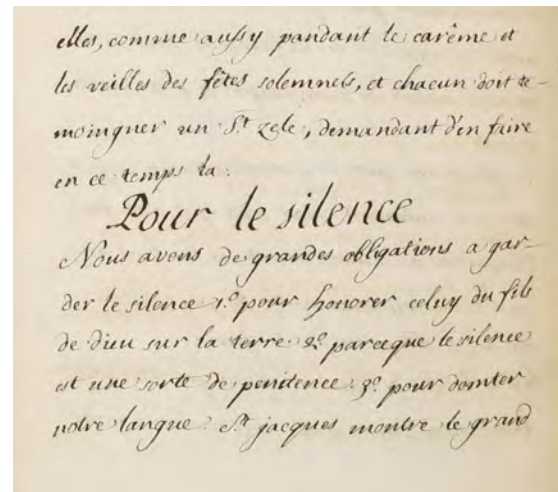 elles, comme aussy pandant le carême et
les veilles des fêtes solemnels, et chacun doit te-
moingner un St. zele, demandant d'en faire
en ce temps la.
Pour le silence
Nous avons de grandes obligations a gar-
der le silence 1º pour honorer celuy du fils
de dieu sur la terre. 2º parceque le silence
est une sorte de penitence. 3º pour domter
notre langue. St. jacques montre le grand